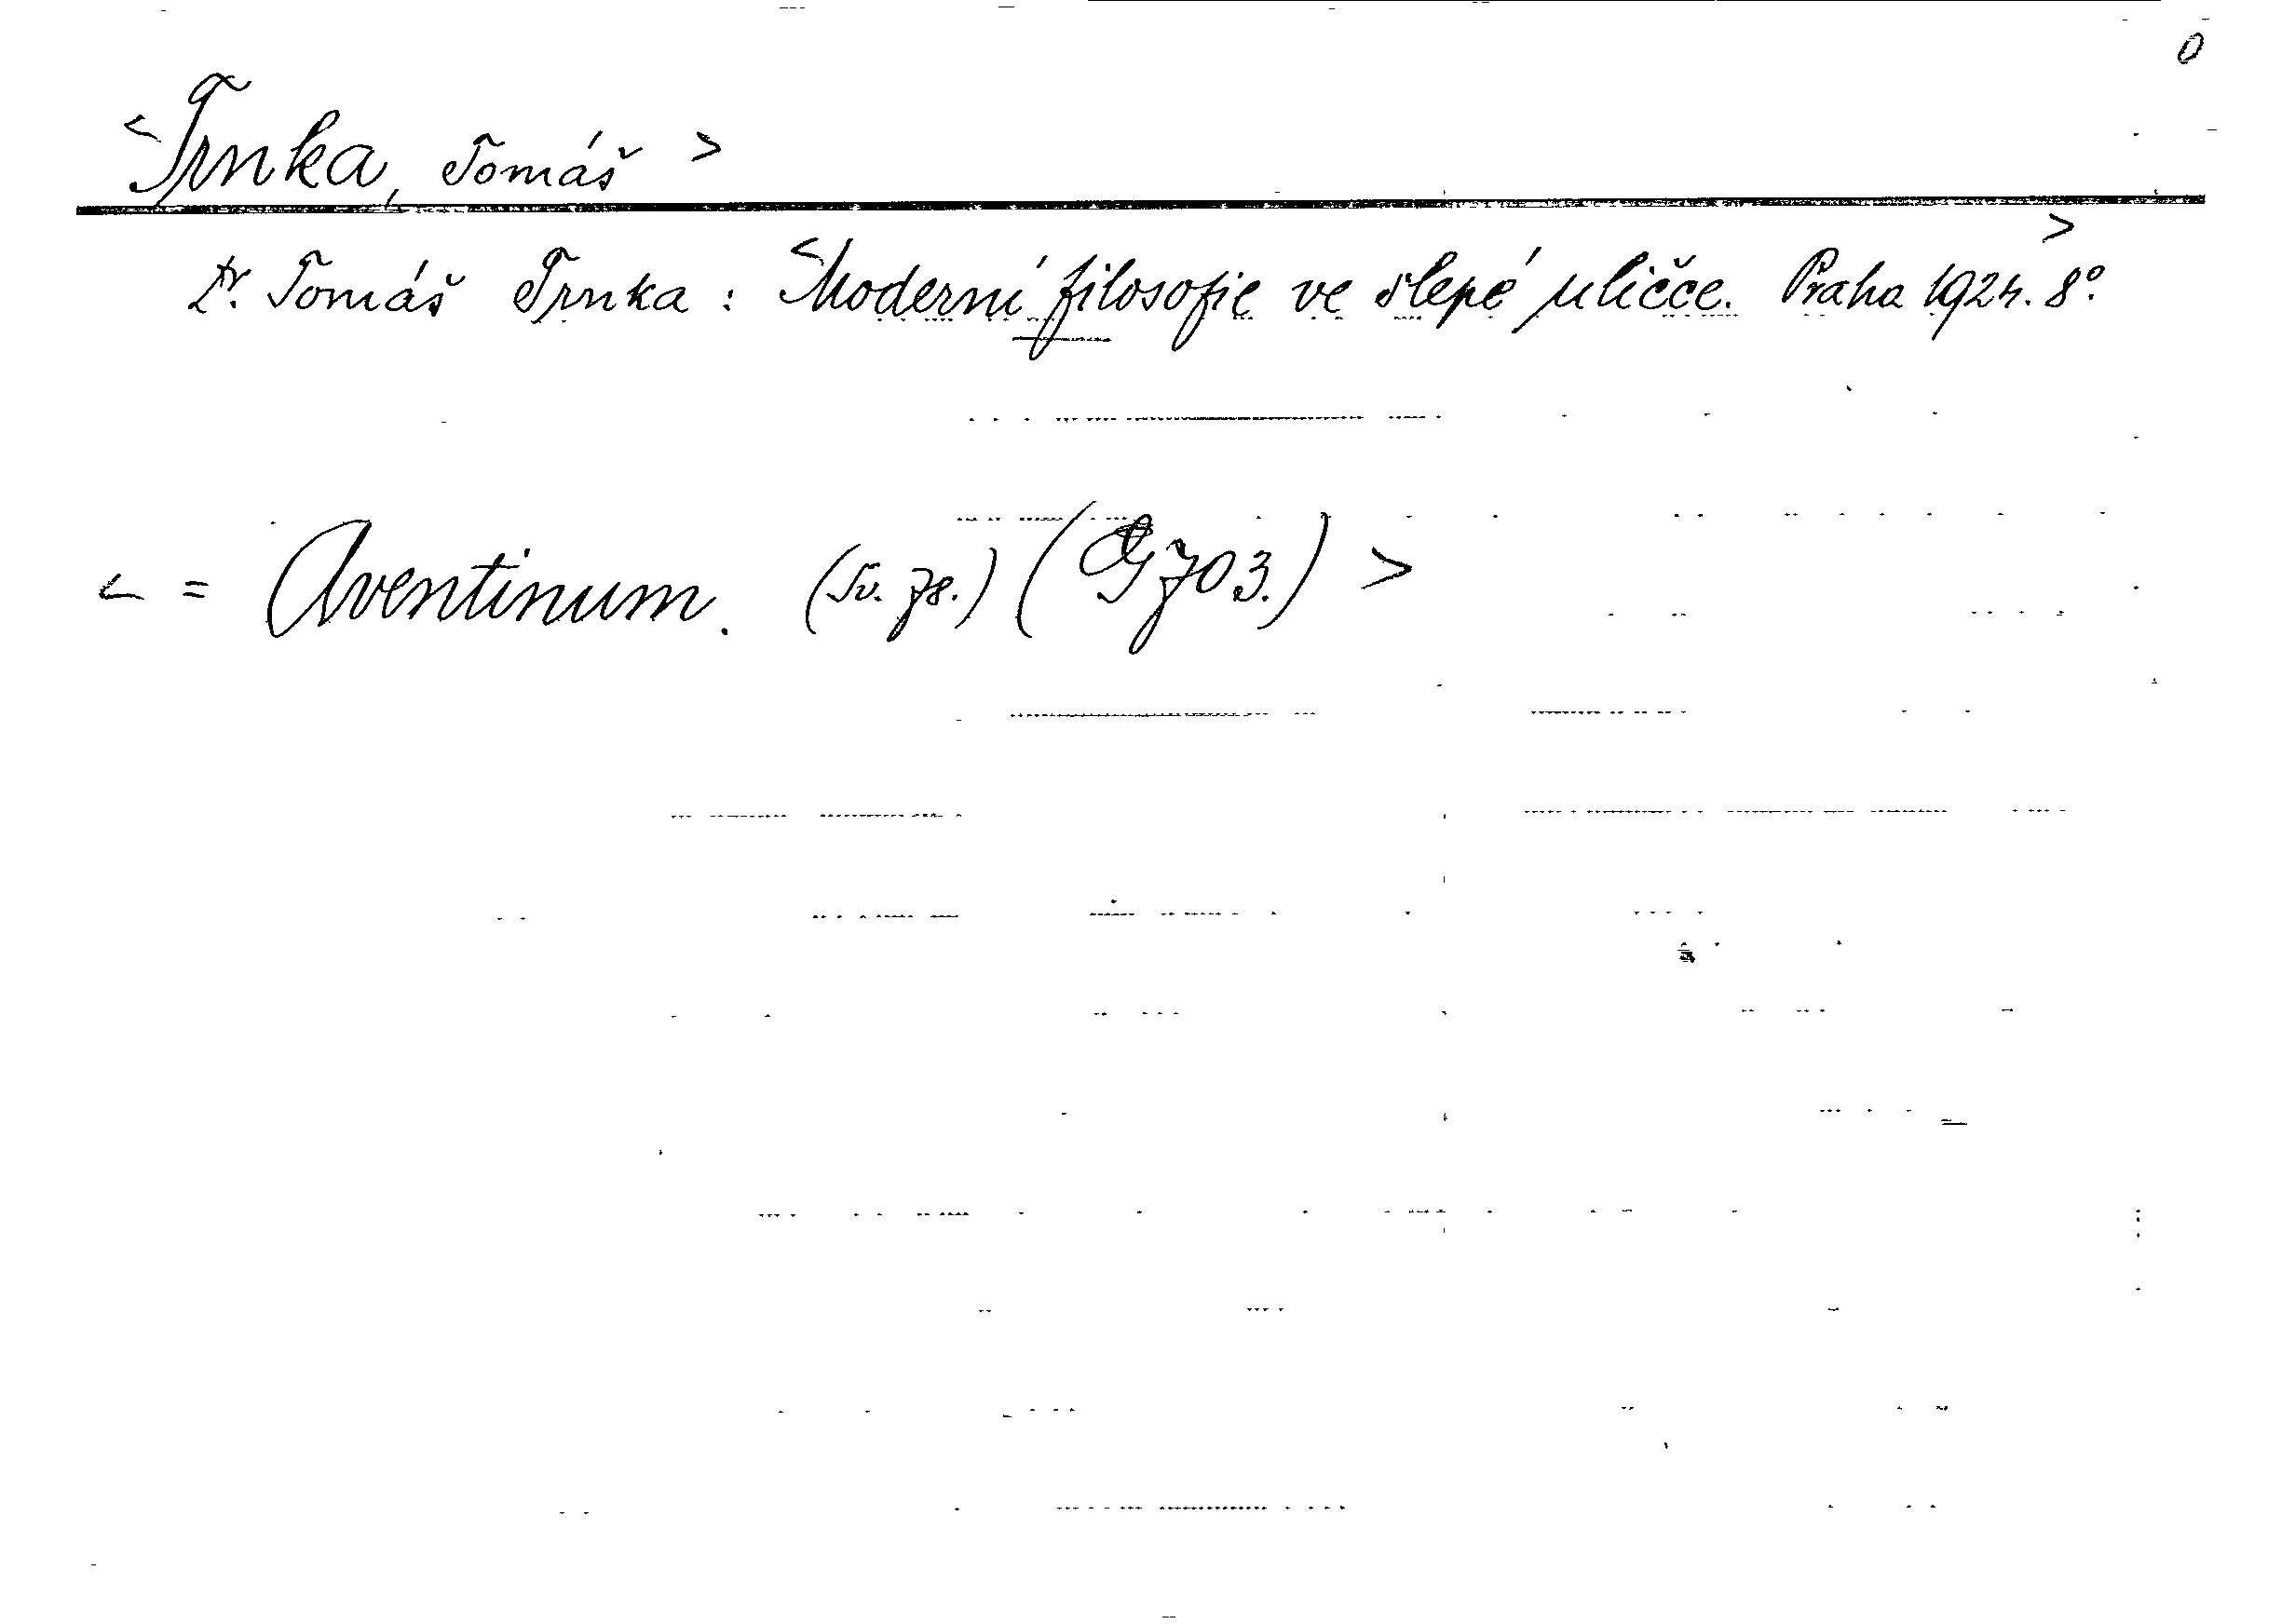 0
<Trnka, Tomáš>
Dr. Tomáš Trnka: <Moderní filosofie ve slepé uličce. Praha 1924. 8°.>
< = Aventinum. (Sv. 78.) (G 703.) >